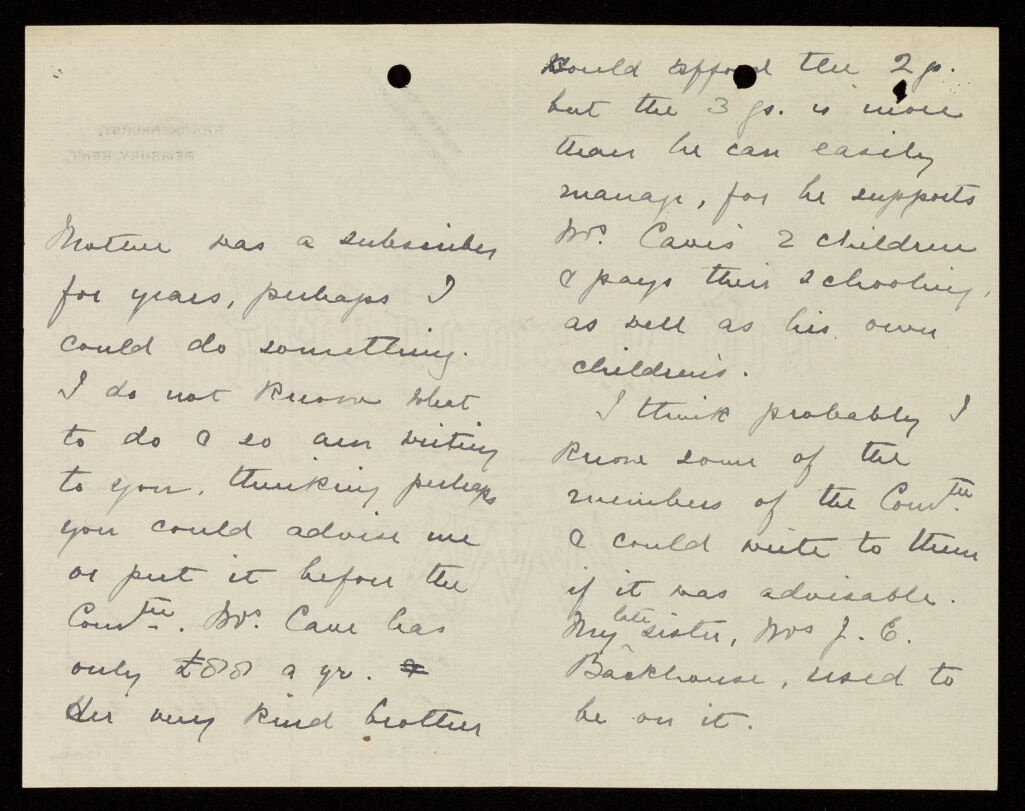 Mother was a subscriber
for years, perhaps I
could do something.
I do not know what
to do & so am writing
to you, thinking perhaps
you could advise me
or put it before the
Comtee. Mrs. Cave has
only £88 a yr. &
Her very kind brother
could afford the 2 g.
but the 3 gs. is more
than he can easily
manage, for he supports
Mrs. Cave's 2 children
& pays their schooling,
as well as his own
children's.
I think probably I
know some of the
members of the Comtee.
& could write to them
if it was advisable.
My late sister, Mrs J. E.
Backhouse, used to
be on it.
BRACKENHURST,
PEMBURY, KENT.